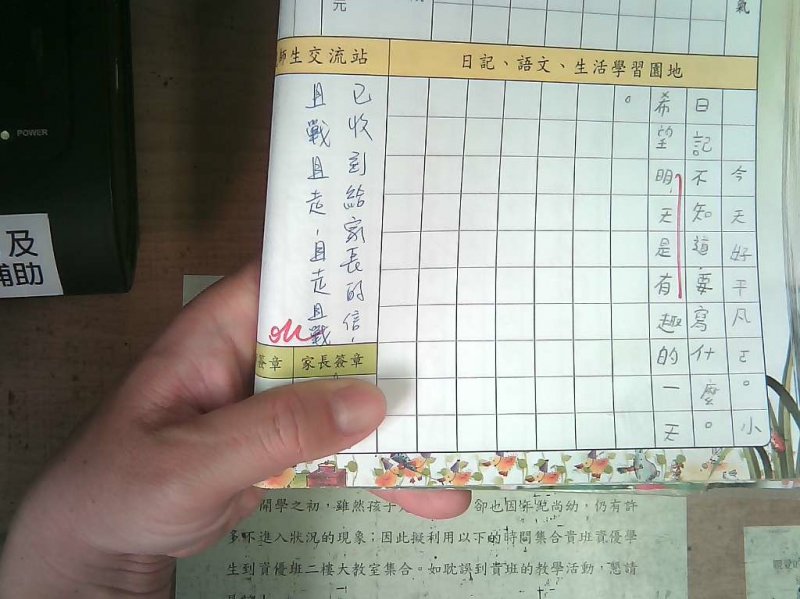 元
氣
師生交流站
日記、語文、生活學習園地
今天好平凡ㄛ。小
日記不知道要寫什麼。
希望明天是有趣的一天
。
已收到給家長的信，
且戰且走，且走且戰
ok
簽章
家長簽章
POWER
及
補助
開學之初，雖然孩子
卻也因年紀尚幼，仍有許
多不進入狀況的現象；因此擬利用以下的時間集合貴班資優學
生到資優班二樓大教室集合。如耽誤到貴班的教學活動，懇請